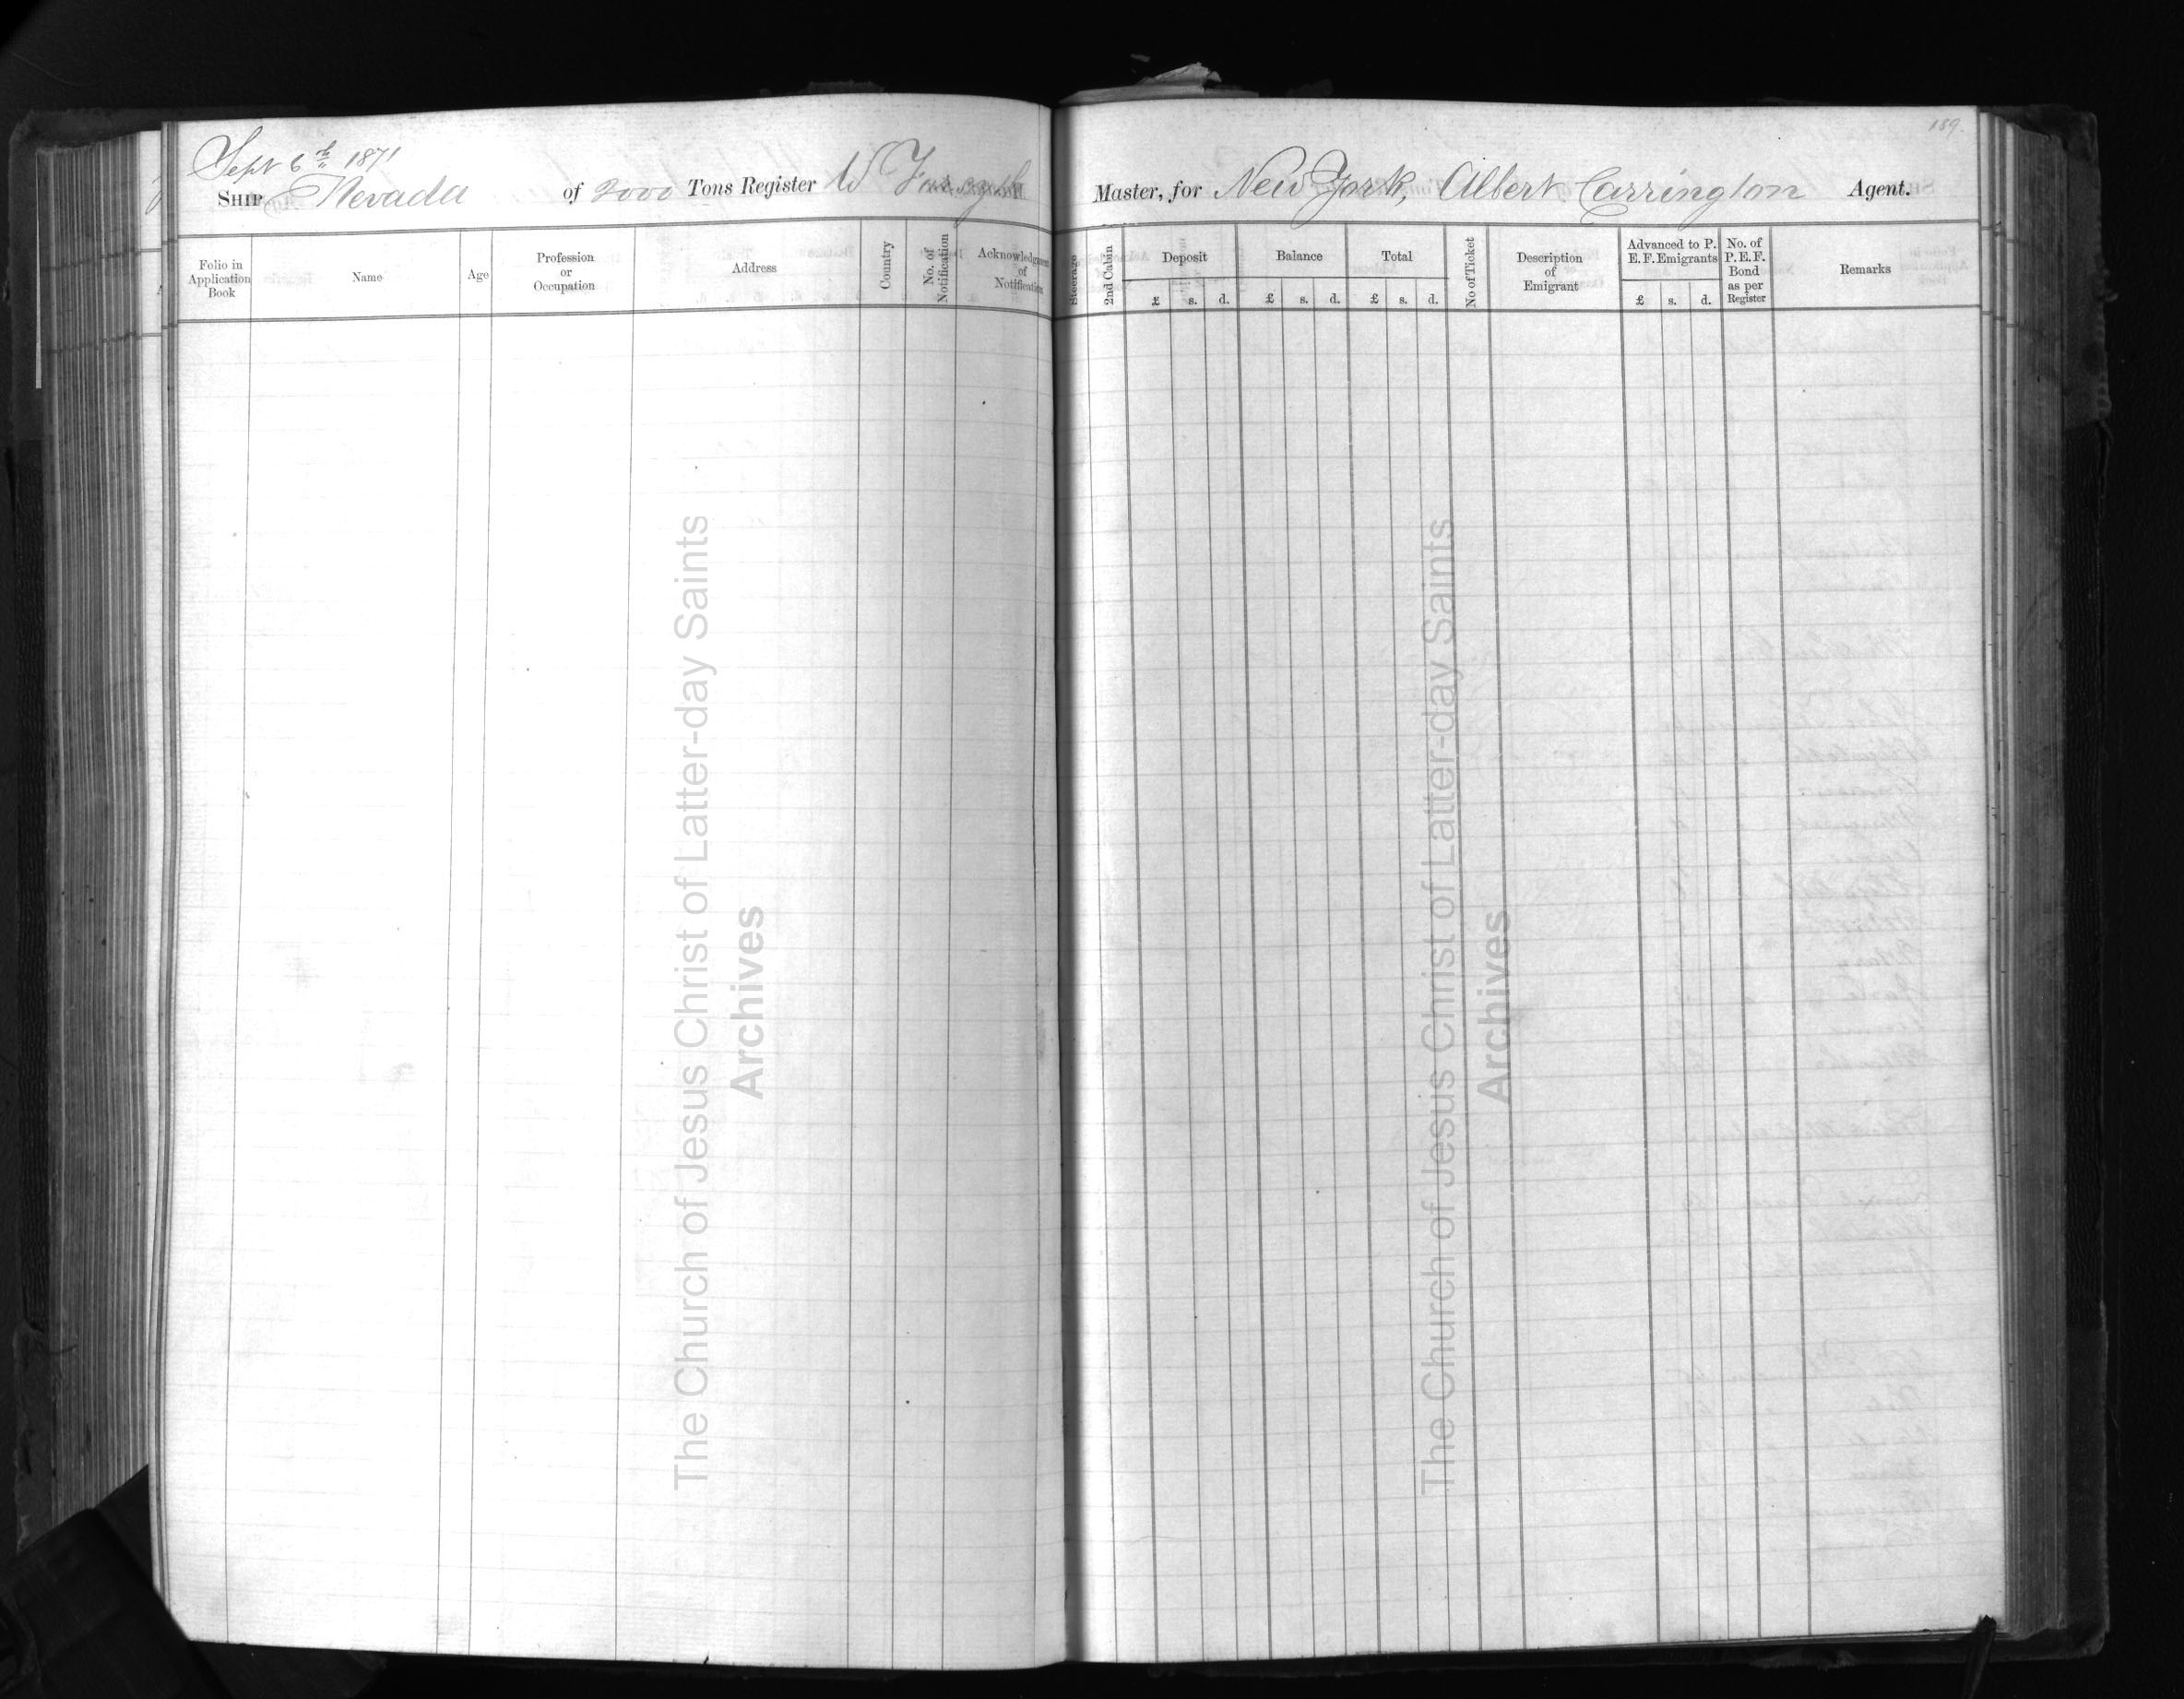 189.
Sept 6th 1871
SHIP Nevada of 2000 Tons Register W Master, for New York, Albert Carrington Agent.
Folio in Application Book
Name
Age
Profession or Occupation
Address
Country
No. of Notification
Acknowledgment of Notification
Steerage
2nd Cabin
Deposit
£ s. d.
Balance
£ s. d.
Total
£ s. d.
No of Ticket
Description of Emigrant
Advanced to P. E. F. Emigrants
£ s. d.
No. of P.E.F. Bond as per Register
Remarks
The Church of Jesus Christ of Latter-day Saints
Archives
The Church of Jesus Christ of Latter-day Saints
Archives